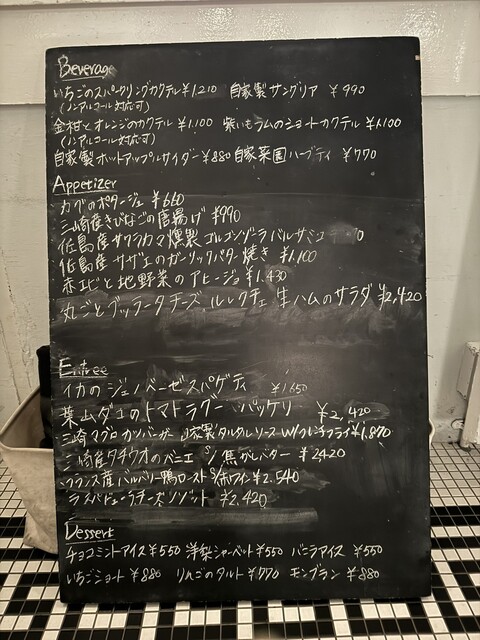 Beverage
いちごのスパークリングカクテル ¥1,210 自家製サングリア ¥990
(ノンアルコール対応可)
金柑とオレンジのカクテル ¥1,100 紫いもラムのショートカクテル ¥1,100
(ノンアルコール対応可)
自家製ホットアップルサイダー ¥880 自家菜園ハーブティ ¥770
Appetizer
カブのポタージュ ¥660
三崎産きびなごの唐揚げ ¥990
佐島産サワラカマ燻製 ゴルゴンゾーラバルサミコ
佐島産サザエのガーリックバター焼き ¥1,100
赤エビと地野菜のアヒージョ ¥1,430
丸ごとブッラータチーズ、ルレクチェ 生ハムのサラダ ¥2,420
Entree
イカのジェノベーゼスパゲティ ¥1,650
葉山ダコのトマトラグー パッケリ ¥2,420
三崎マグロカツバーガー 自家製タルタルソース w/フレンチフライ ¥1,870
三崎産タチウオのパニエ S/焦がしバター ¥2,420
フランス産バルバリー鴨ロースト S/赤ワイン ¥2,540
チーズリゾット ¥2,420
Dessert
チョコミントアイス ¥550 洋梨シャーベット ¥550 バニラアイス ¥550
いちごショート ¥880 りんごのタルト ¥770 モンブラン ¥880